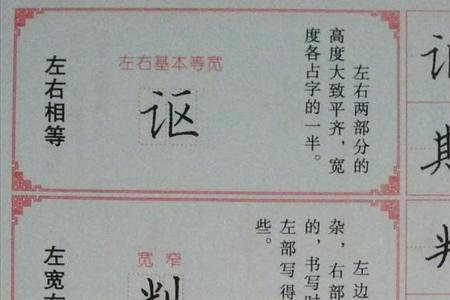 左右相等
左右基本等宽
讴
左右两部分的
高度大致平齐，宽
度各占字的一半。
宽 窄
判
左边
杂，右部
的，书写时
左部写得
些。
左宽
期
判